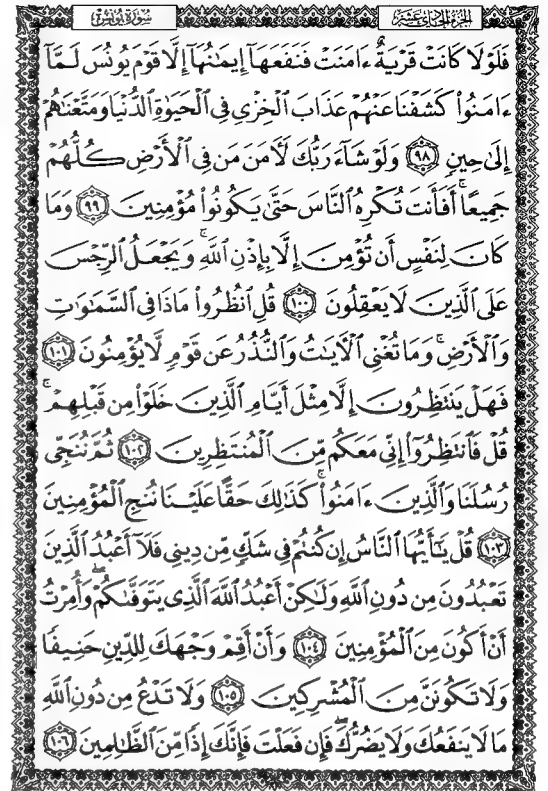 سُورَةُ يُونُسَ
الجُزْءُ الحَادِيَ عَشَرَ
فَلَوْلَا كَانَتْ قَرْيَةٌ ءَامَنَتْ فَنَفَعَهَآ إِيمَٰنُهَآ إِلَّا قَوْمَ يُونُسَ لَمَّآ
ءَامَنُوا۟ كَشَفْنَا عَنْهُمْ عَذَابَ ٱلْخِزْىِ فِى ٱلْحَيَوٰةِ ٱلدُّنْيَا وَمَتَّعْنَٰهُمْ
إِلَىٰ حِينٍ ٩٨ وَلَوْ شَآءَ رَبُّكَ لَءَامَنَ مَن فِى ٱلْأَرْضِ كُلُّهُمْ
جَمِيعًا ۚ أَفَأَنتَ تُكْرِهُ ٱلنَّاسَ حَتَّىٰ يَكُونُوا۟ مُؤْمِنِينَ ٩٩ وَمَا
كَانَ لِنَفْسٍ أَن تُؤْمِنَ إِلَّا بِإِذْنِ ٱللَّهِ ۚ وَيَجْعَلُ ٱلرِّجْسَ
عَلَى ٱلَّذِينَ لَا يَعْقِلُونَ ١٠٠ قُلِ ٱنظُرُوا۟ مَاذَا فِى ٱلسَّمَٰوَٰتِ
وَٱلْأَرْضِ ۚ وَمَا تُغْنِى ٱلْءَايَٰتُ وَٱلنُّذُرُ عَن قَوْمٍ لَّا يُؤْمِنُونَ ١٠١
فَهَلْ يَنتَظِرُونَ إِلَّا مِثْلَ أَيَّامِ ٱلَّذِينَ خَلَوْا۟ مِن قَبْلِهِمْ ۚ
قُلْ فَٱنتَظِرُوٓا۟ إِنِّى مَعَكُم مِّنَ ٱلْمُنتَظِرِينَ ١٠٢ ثُمَّ نُنَجِّى
رُسُلَنَا وَٱلَّذِينَ ءَامَنُوا۟ ۚ كَذَٰلِكَ حَقًّا عَلَيْنَا نُنجِ ٱلْمُؤْمِنِينَ
١٠٣ قُلْ يَٰٓأَيُّهَا ٱلنَّاسُ إِن كُنتُمْ فِى شَكٍّ مِّن دِينِى فَلَآ أَعْبُدُ ٱلَّذِينَ
تَعْبُدُونَ مِن دُونِ ٱللَّهِ وَلَٰكِنْ أَعْبُدُ ٱللَّهَ ٱلَّذِى يَتَوَفَّىٰكُمْ ۖ وَأُمِرْتُ
أَنْ أَكُونَ مِنَ ٱلْمُؤْمِنِينَ ١٠٤ وَأَنْ أَقِمْ وَجْهَكَ لِلدِّينِ حَنِيفًا
وَلَا تَكُونَنَّ مِنَ ٱلْمُشْرِكِينَ ١٠٥ وَلَا تَدْعُ مِن دُونِ ٱللَّهِ
مَا لَا يَنفَعُكَ وَلَا يَضُرُّكَ ۖ فَإِن فَعَلْتَ فَإِنَّكَ إِذًا مِّنَ ٱلظَّٰلِمِينَ ١٠٦